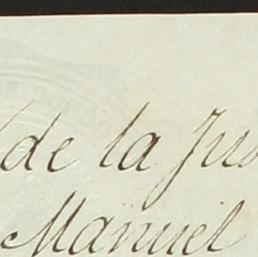 de la Jus
Manuel